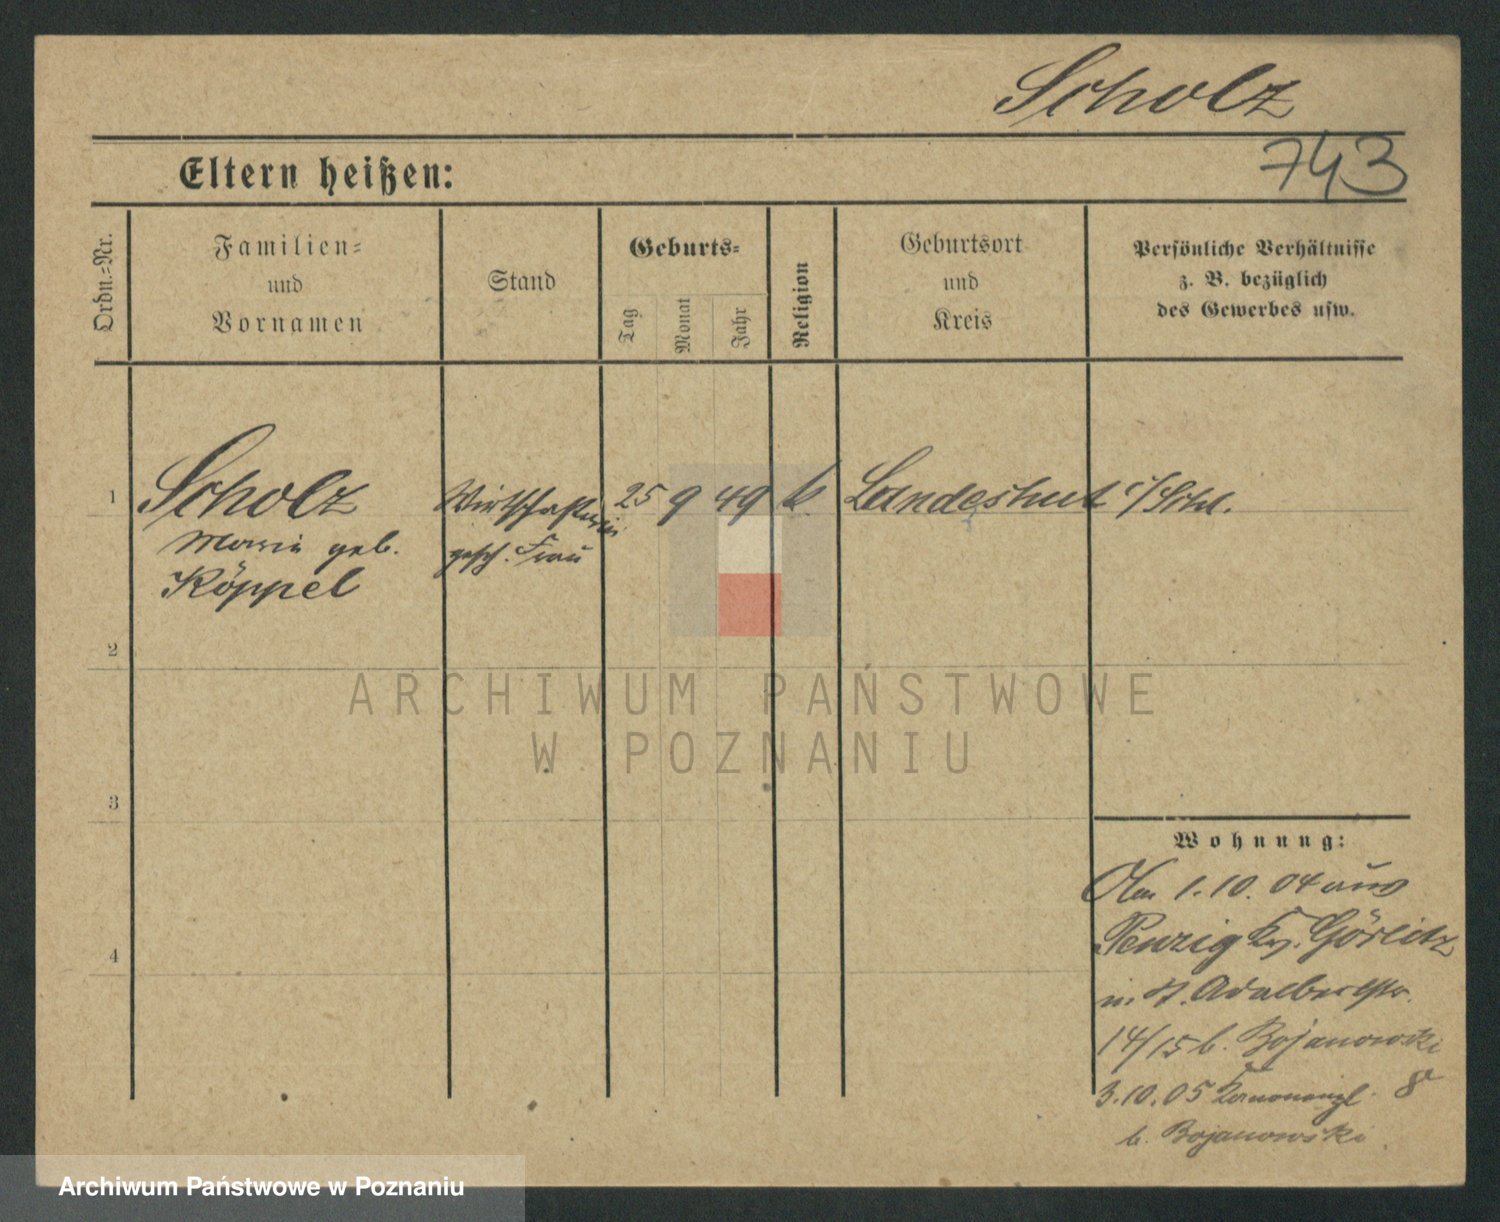 Scholz
743
Eltern heißen:
Ordn.-Nr.
Familien-
und
Vornamen
Stand
Geburts-
Tag
Monat
Jahr
Religion
Geburtsort
und
Kreis
Persönliche Verhältnisse
z. B. bezüglich
des Gewerbes usw.
1
Scholz
Marie geb.
Köppel
Wirtschafterin
gesch. Frau
25 9 49 k
Landeshut i/Schl.
2
3
4
ARCHIWUM PAŃSTWOWE
W POZNANIU
Wohnung:
1.10.04 aus
Penzig Kr. Görlitz
n. St. Adalbertstr.
14/15 b. Bojanowski
3.10.05 8
b. Bojanowski
Archiwum Państwowe w Poznaniu